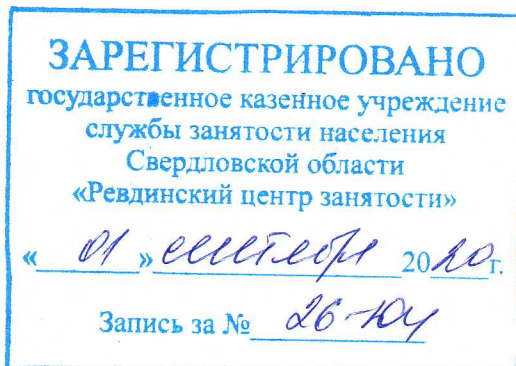 ЗАРЕГИСТРИРОВАНО
государственное казенное учреждение
службы занятости населения
Свердловской области
«Ревдинский центр занятости»
« 01 » сентября 2020 г.
Запись за № 26-